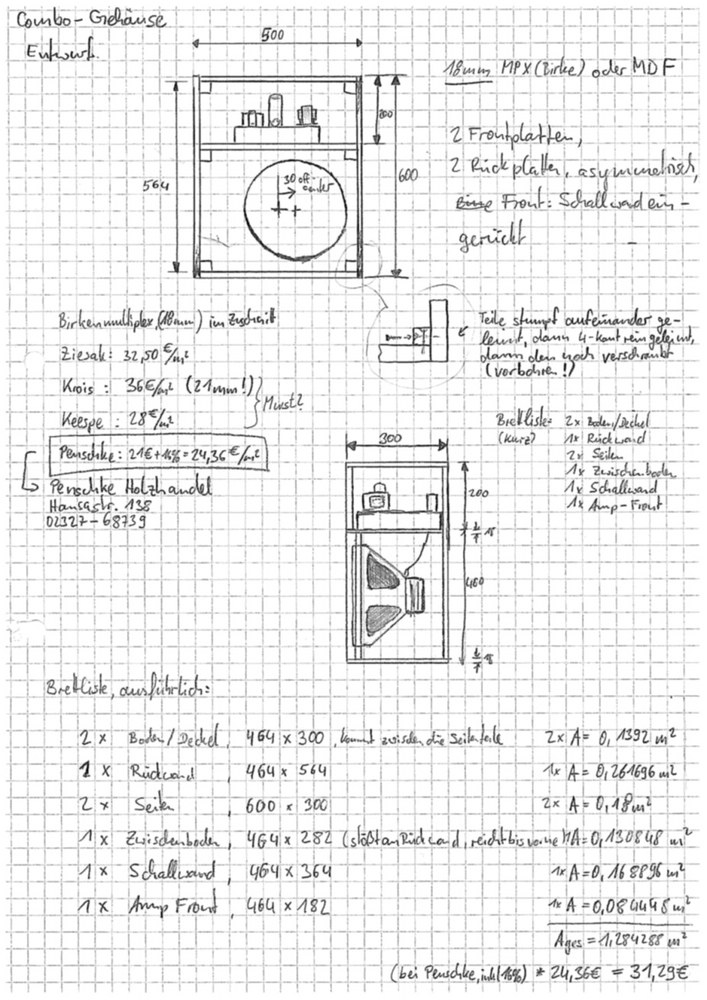 Combo-Gehäuse
Entwurf.
500
18mm MPX (Birke) oder MDF
200
564
600
30 off-center
2 Frontplatten,
2 Rückplatten, asymmetrisch,
Eine Front: Schallwand ein-
gerückt
Birkenmultiplex (18mm) im Zuschnitt
Ziesak: 32,50 €/m²
Krois : 36€/m² (21mm!)
Keespe : 28€/m²
Penschke: 21€+16% = 24,36 €/m²
Penschke Holzhandel
Hansastr. 138
02327-68739
Teile stumpf aufeinander ge-
leimt, dann 4-kant rein geleimt,
dann den noch verschraubt
(vorbohren!)
Brettliste: 2x Boden/Deckel
(kurz) 1x Rückwand
2x Seiten
1x Zwischenboden
1x Schallwand
1x Amp-Front
300
200
18
18
Brettliste, ausführlich:
2 x Boden/Deckel, 464 x 300, kommt zwischen die Seitenteile 2x A= 0,1392 m²
1 x Rückwand 464 x 564 1x A= 0,261696 m²
2 x Seiten, 600 x 300 2x A= 0,18m²
1 x Zwischenboden, 464 x 282 (stößt an Rückwand, reicht bis vorne) A=0,130848 m²
1 x Schallwand, 464 x 364 1x A=0,168896 m²
1 x Amp Front, 464 x 182 1x A=0,084448 m²
Ages = 1,284288 m²
(bei Penschke, inkl 16%) * 24,36€ = 31,29€